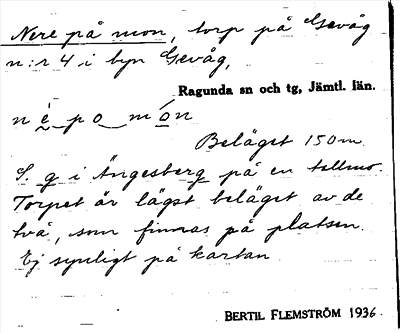 Nere på mon, torp på Gevåg
n:r 4 i byn Gevåg,
Ragunda sn och tg, Jämtl. län.
n è po món
Beläget 150 m
S. g i Ängesberg på en tallmo.
Torpet är lägst beläget av de
två, som finnas på platsen.
Ej synligt på kartan
BERTIL FLEMSTRÖM 1936.